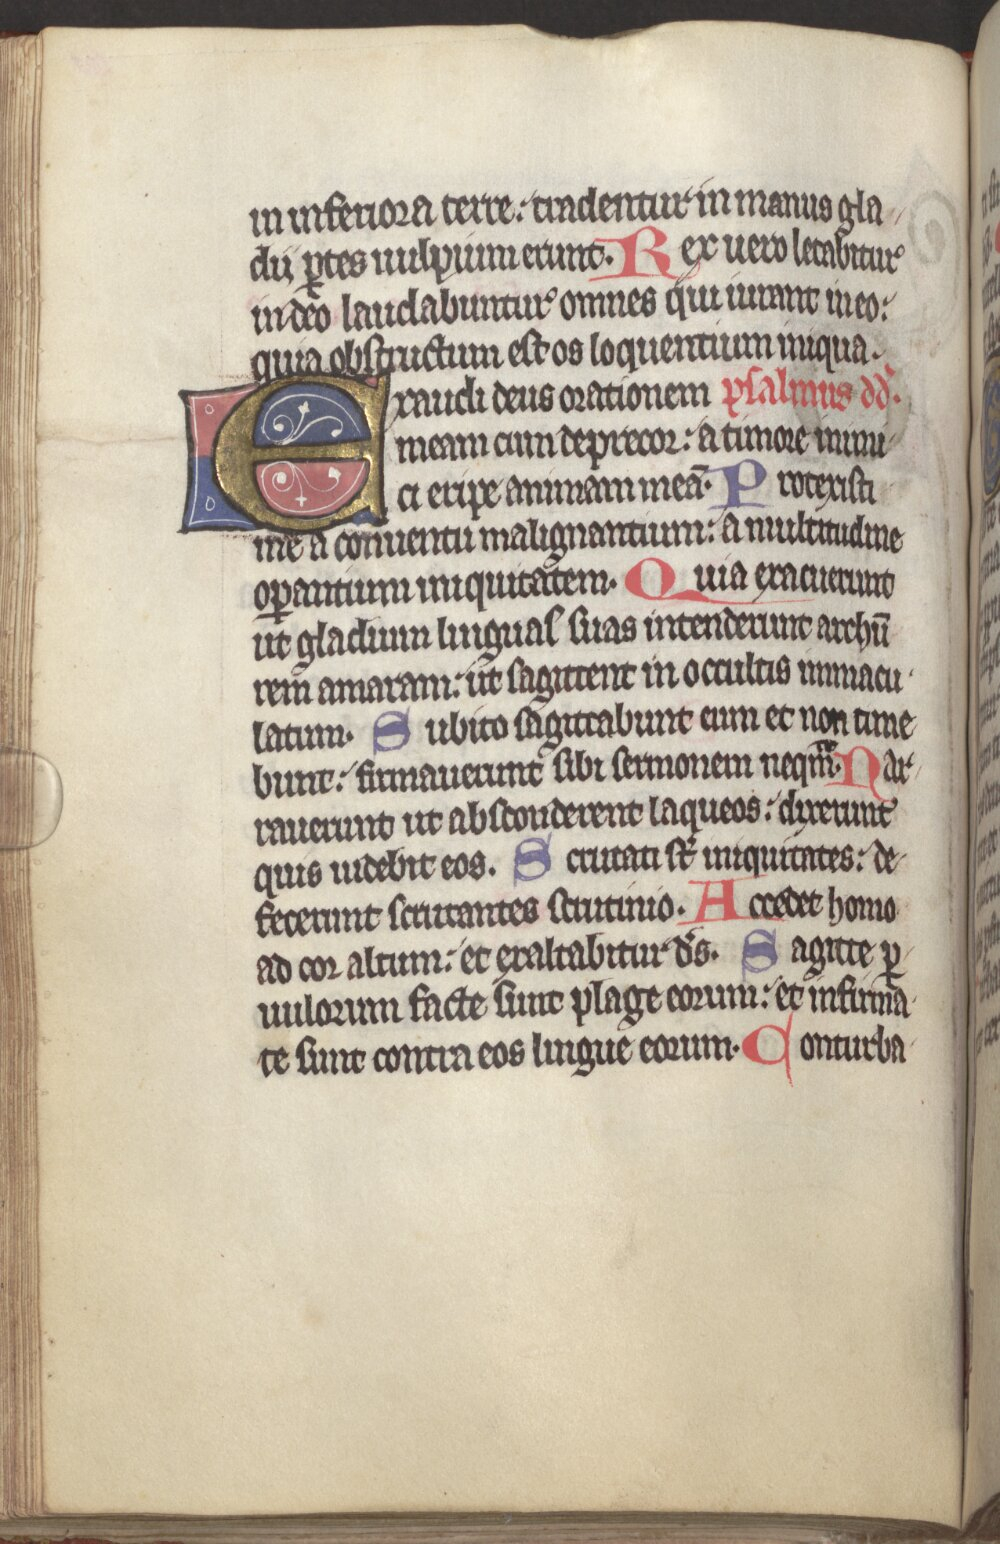 in inferiora terre: tradentur in manus gla
dii ꝑtes uulpium erunt. Rex uero letabitur
in deo laudabuntur omnes qui iurant in eo:
quia obstructum est os loquentium iniqua.
Exaudi deus orationem psalmus dd̄.
meam cum deprecor: a timore inimi
ci eripe animam meā. Protexisti
me a conuentu malignantium: a multitudine
oꝑantium iniquitatem. Quia exacuerunt
ut gladium linguas suas intenderunt archū
rem amaram: ut sagittent in occultis immacu
latum. Subito sagittabunt eum et non time
bunt: firmauerunt sibi sermonem neqm̄. Nar
rauerunt ut absconderent laqueos: dixerunt
quis uidebit eos. Scrutati st̄ iniquitates: de
fecerunt scrutantes scrutinio. Accedet homo
ad cor altum: et exaltabitur ds̄. Sagitte ꝑ
uulorum facte sunt plage eorum: et infirma
te sunt contra eos lingue eorum. Conturba